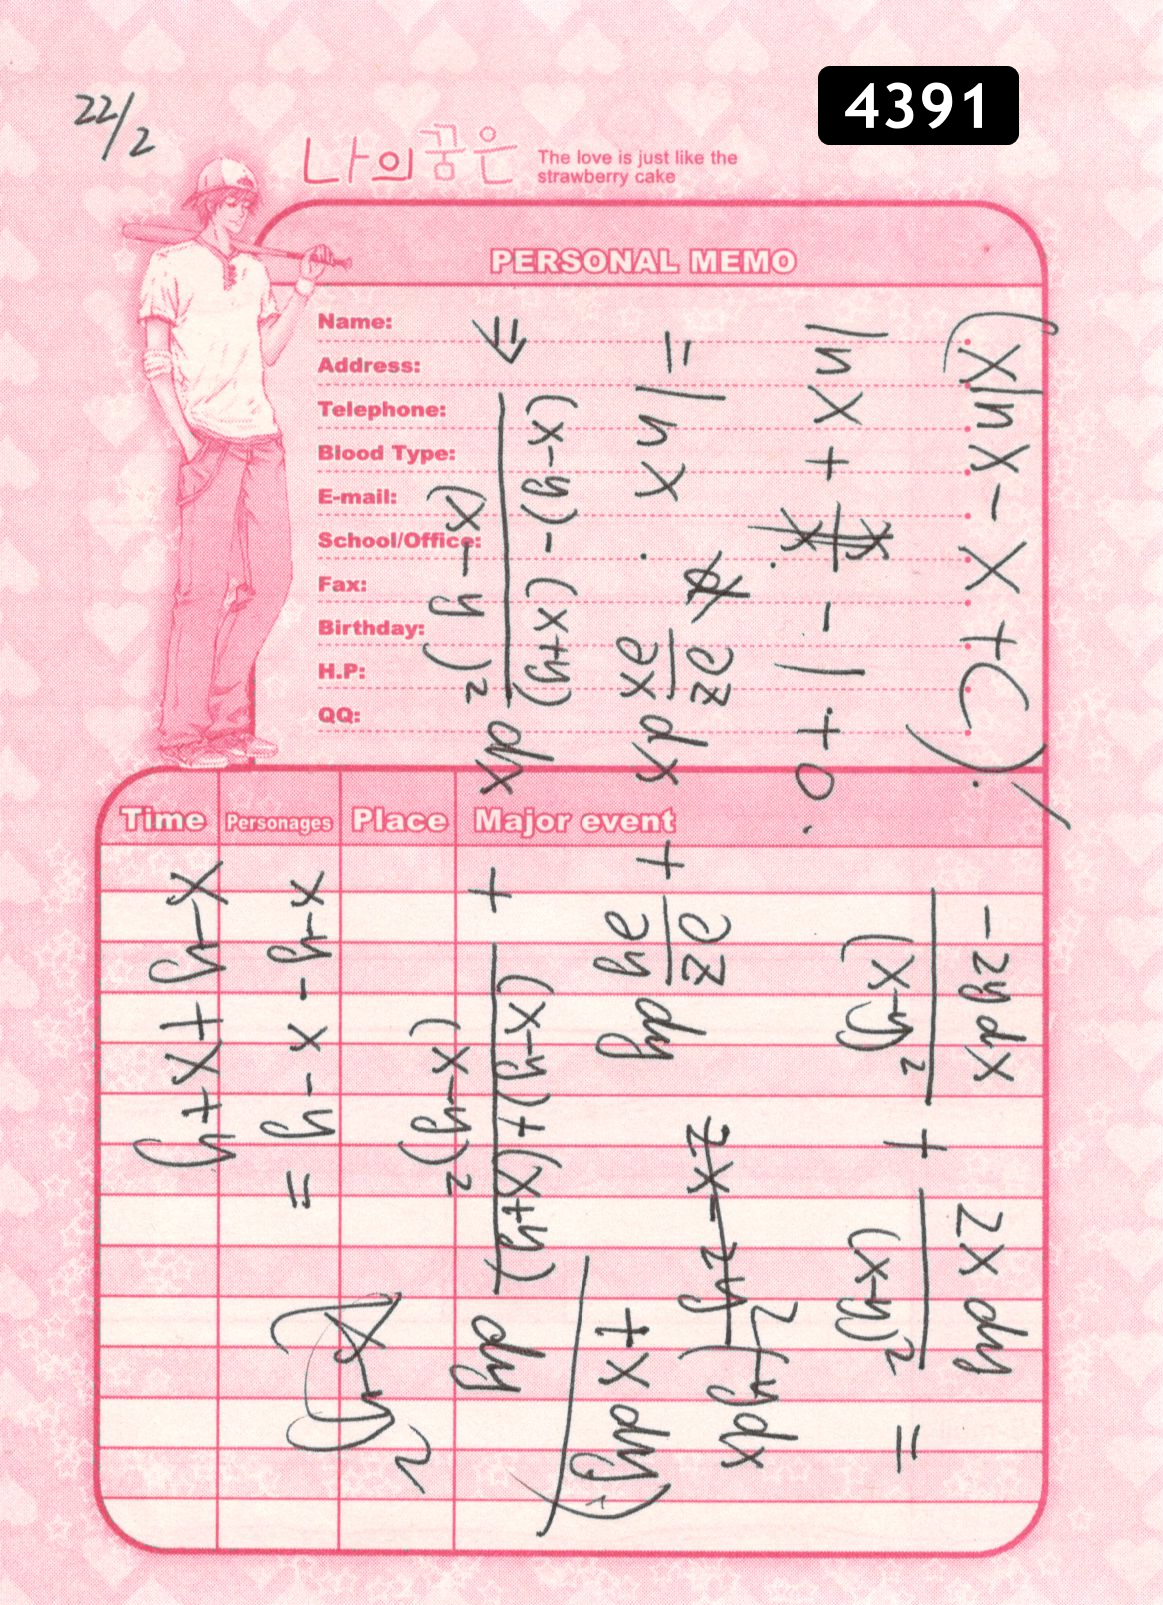 22/2
4391
나의꿈은
The love is just like the
strawberry cake
PERSONAL MEMO
Name:
Address:
Telephone:
Blood Type:
E-mail:
School/Office:
Fax:
Birthday:
H.P:
QQ:
Time Personages Place Major event
(x ln x - x + C)'
ln x + x/x - 1 + 0.
= ln x .
∂z/∂x dx + ∂z/∂y dy
⇒ (x-y) - (x+y) / (x-y)² dx + (x-y) + (x+y) / (x-y)² dy
-2y dx / (x-y)² + 2x dy / (x-y)² =
2 / (x-y)² (-y dx + x dy)
x-y + x+y
x-y - x - y =